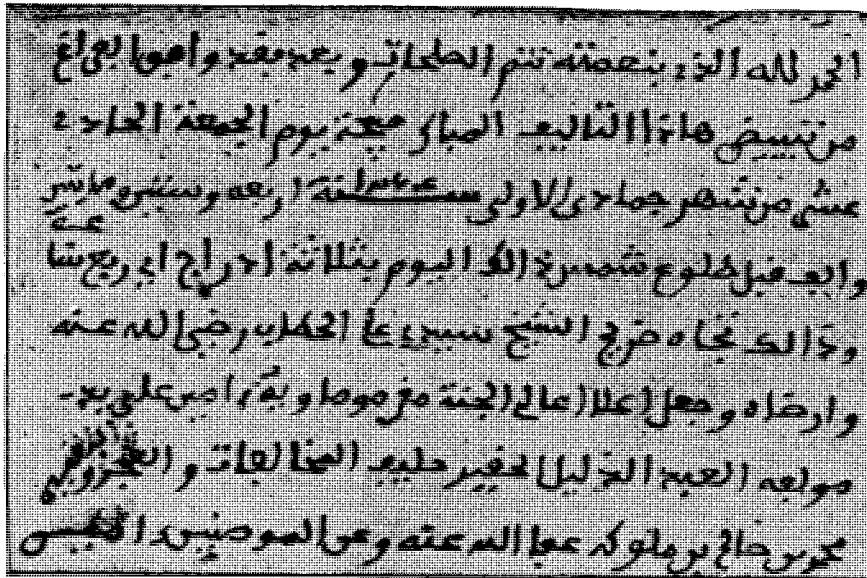 الحمد لله الذي بنعمته تتم الصلحات وبعد فقد وافق الفراغ
من تبييض هاذا التاليف المبارك صبيحة يوم الجمعة الحادي
عشر من شهر جمادى الاولى سنة اربعة وستين ومايتين
والف قبل طلوع شمس ذالك اليوم بثلاثة ادراج اي ربع ساعة
وذالك تجاه ضريح الشيخ سيدي علي الحطاب رضي الله عنه
وارضاه وجعل اعلا اعالي الجنة منزله وماويه ءامين على يد
مولفه العبد الذليل الحقير حليف المخالفات و
محمد بن صالح بن ملوكه عفا الله عنه وعن المومنين